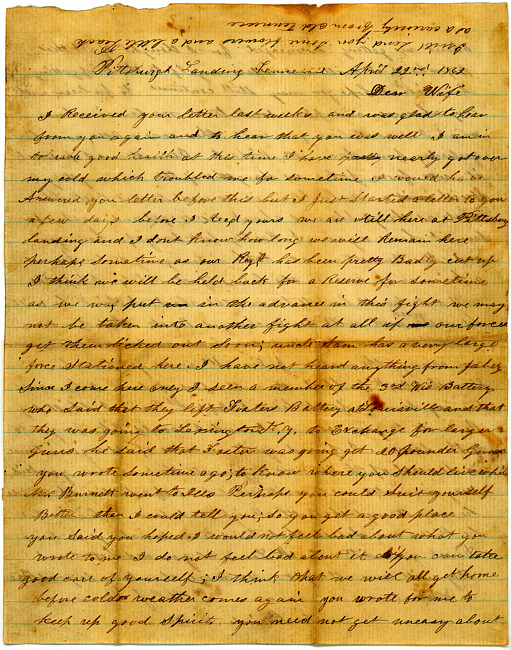 I will send you some flowers and a little Leaf
as a curiosity from old tennessee
Pittsburgh Landing Tennessee April 22nd 1862
Dear Wife
I Received your letter last week and was glad to hear
from you again and to hear that you was well I am in
tolerable good health at this time I have nearly got over
my cold which troubled me for sometime I would have
Answered your letter before this but I Just Started a letter to you
a few days before I Recd yours we are still here at Pittsburg
landing and I dont know how long we will Remain here
perhaps sometime as our Regt has been pretty Badly cut up
I think we will be held back for a Reserve for sometime
as we was put in the advance in this fight we may
not be taken into another fight at all if our forces
get them licked out soon; uncle Sam has a very large
force Stationed here. I have not heard anything from
Since I come here only I seen a member of the 3rd Wis Battery
who said that they left Fosters Battery at Louisville and that
they was going to Lexington Ky, to Exchange for larger
Guns he said that Foster was going get 20 pounder Guns
you wrote sometime ago, to know where you should live while
Mr Burnett went to Ills Perhaps you could Suit yourself
Better than I could tell you; so you get a good place
you said you hoped I would not feel bad about what you
wrote to me I do not feel bad about it if you can take
good care of yourself; I think that we will all get home
before cold weather comes again you wrote for me to
keep up good Spirits you need not get uneasy about